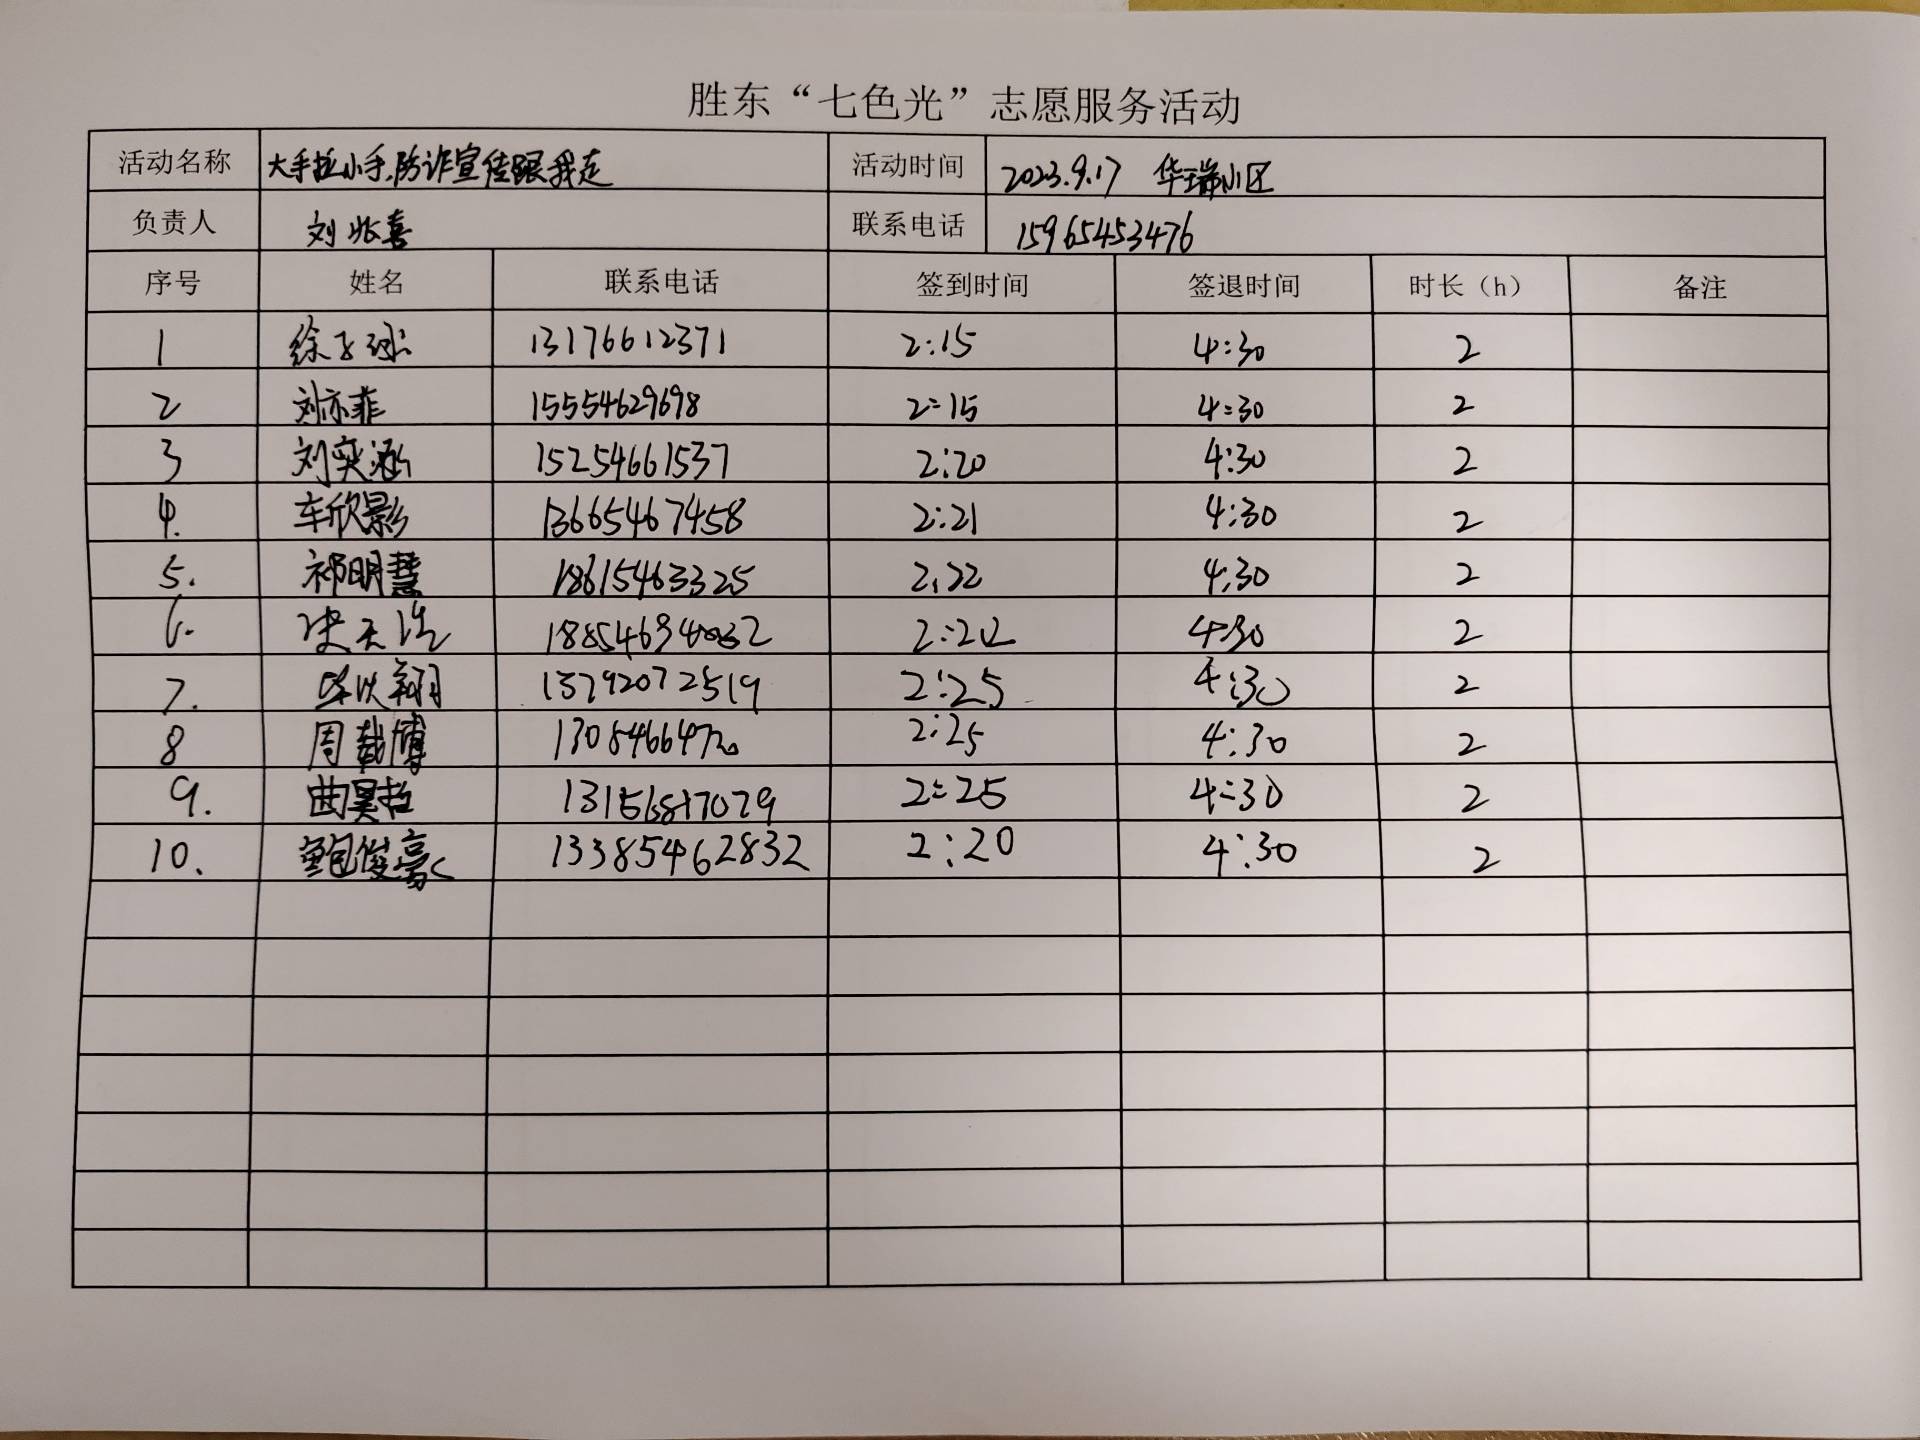 胜东“七色光”志愿服务活动
活动名称 大手拉小手,防诈宣传跟我走 活动时间 2023.9.17 华瑞小区
负责人 刘 喜 联系电话 15965453476
序号 姓名 联系电话 签到时间 签退时间 时长（h） 备注
1 徐子 13176612371 2:15 4:30 2
2 刘亦菲 15554629698 2:15 4:30 2
3 刘奕涵 15254661537 2:20 4:30 2
4. 车欣影 13665467458 2:21 4:30 2
5. 祁明慧 18615463325 2:22 4:30 2
6. 2:22 4:30 2
7. 13792072519 2:25 4:30 2
8 周载博 2:25 4:30 2
9. 曲昊哲 2:25 4:30 2
10. 鲍俊豪 13385462832 2:20 4:30 2